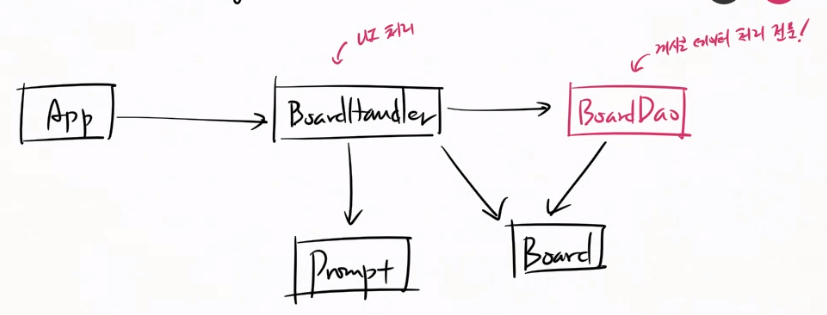 UI 처리
게시글 데이터 처리 전문!
App
BoardHandler
BoardDao
Prompt
Board